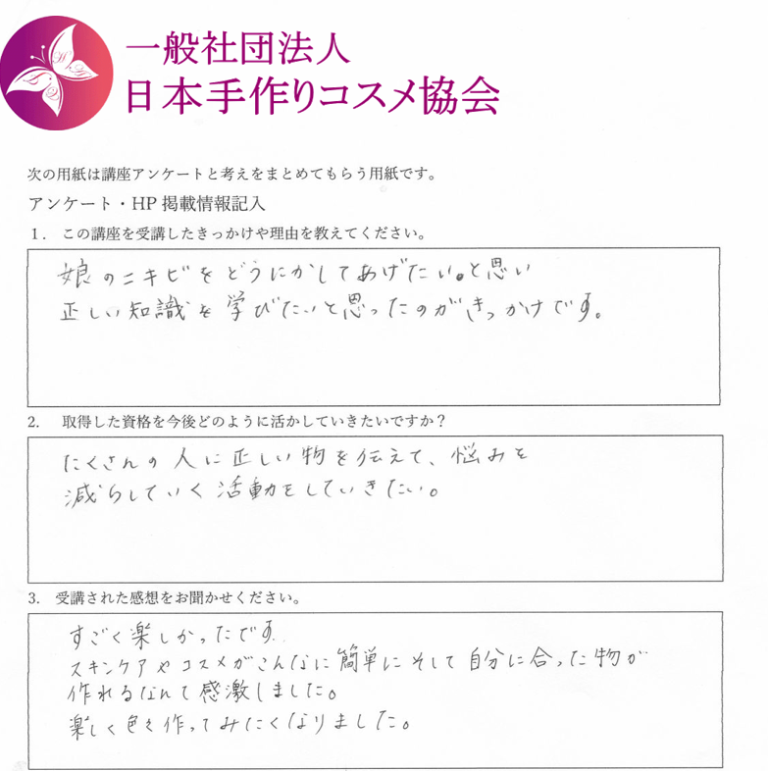 一般社団法人
日本手作りコスメ協会
次の用紙は講座アンケートと考えをまとめてもらう用紙です。
アンケート・HP 掲載情報記入
1. この講座を受講したきっかけや理由を教えてください。
娘のニキビをどうにかしてあげたい。と思い
正しい知識を学びたいと思ったのがきっかけです。
2. 取得した資格を今後どのように活かしていきたいですか？
たくさんの人に正しい物を伝えて、悩みを
減らしていく活動をしていきたい。
3. 受講された感想をお聞かせください。
すごく楽しかったです.
スキンケアやコスメがこんなに簡単にそして自分に合った物が
作れるなんて感激しました。
楽しく色々作ってみたくなりました。